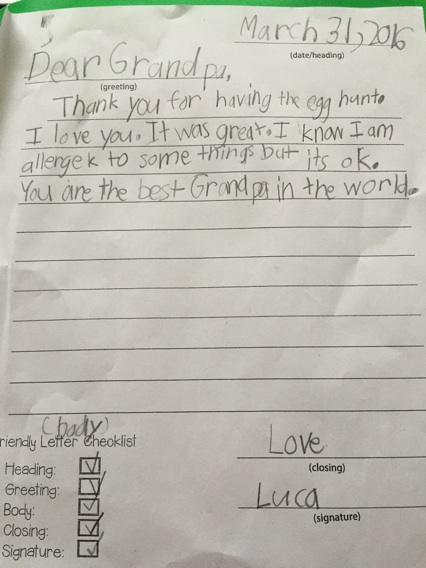 5
March 31, 2016
(date/heading)
Dear Grandpa,
(greeting)
Thank you for having the egg hunt.
I love you. It was great. I know I am
allergek to some things but its ok.
You are the best Grandpa in the world.
(body)
riendly Letter Checklist
Heading:
Greeting:
Body:
Closing:
Signature:
Love
(closing)
Luca
(signature)